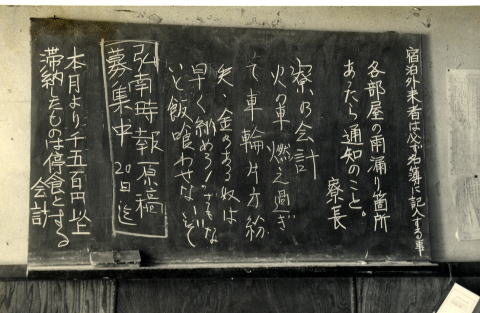 宿泊外来者は必ず名簿に記入する事
各部屋の雨漏り箇所
あったら通知のこと。
寮長
寮の会計
火の車 燃え過ぎ
て車輪片方紛
失、金のある奴は
早く納めろ!さもな
いと飯喰わせないぞ
弘南時報原稿
募集中 20日迄
本月より千五百円以上
滞納したものは停食とする
会計